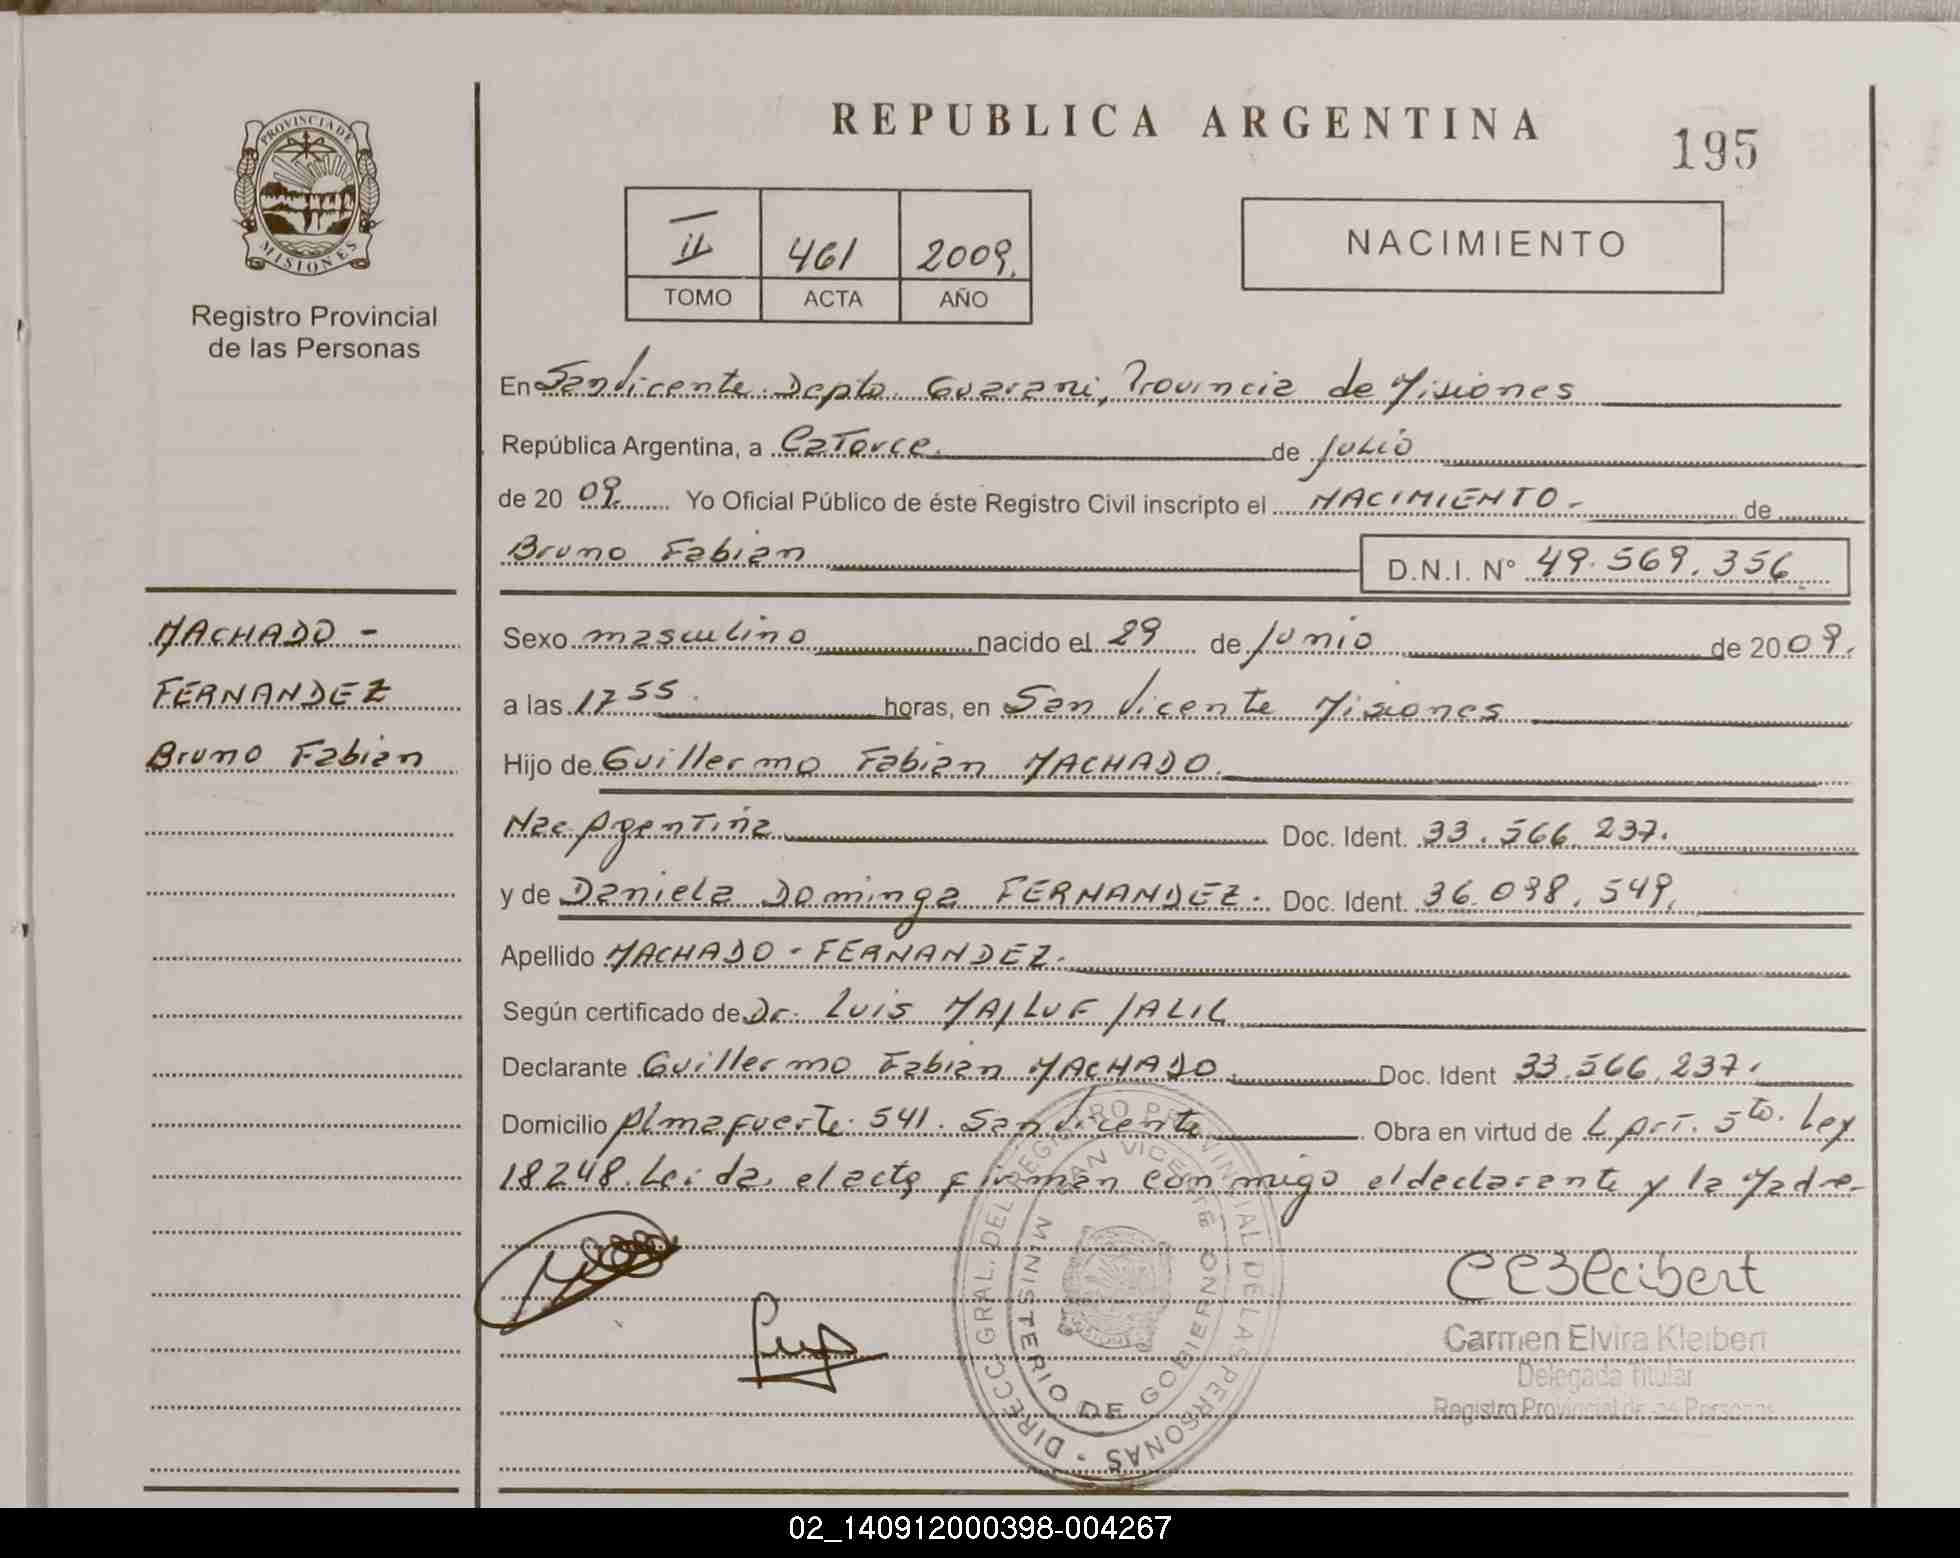 REPUBLICA ARGENTINA
195
PROVINCIA DE
MISIONES
Registro Provincial
de las Personas
II 461 2009.
TOMO ACTA AÑO
NACIMIENTO
En San Vicente. Depto. Guarani, Provincia de Misiones
República Argentina, a Catorce. de Julio
de 20 09. Yo Oficial Público de éste Registro Civil inscripto el NACIMIENTO - de
Bruno Fabian D.N.I. N° 49.569.356
MACHADO -
FERNANDEZ
Bruno Fabian
Sexo masculino nacido el 29 de Junio de 20 09.
a las 17 55. horas, en San Vicente Misiones
Hijo de Guillermo Fabian MACHADO.
Nac. Argentina Doc. Ident. 33.566.237.
y de Daniela Dominga FERNANDEZ. Doc. Ident. 36.098.549.
Apellido MACHADO - FERNANDEZ.
Según certificado de Dr. Luis MAJLUF JALIL
Declarante Guillermo Fabian MACHADO. Doc. Ident 33.566.237.
Domicilio Almafuerte. 541. San Vicente Obra en virtud de L Art. 5to. Ley
18248. Leida, el acta firman conmigo el declarante y la Madre
DIRECC. GRAL. DEL REGISTRO PROVINCIAL DE LAS PERSONAS
SAN VICENTE
MINISTERIO DE GOBIERNO
CEKleibert
Carmen Elvira Kleibert
Delegada Titular
Registro Provincial de las Personas
02_140912000398-004267